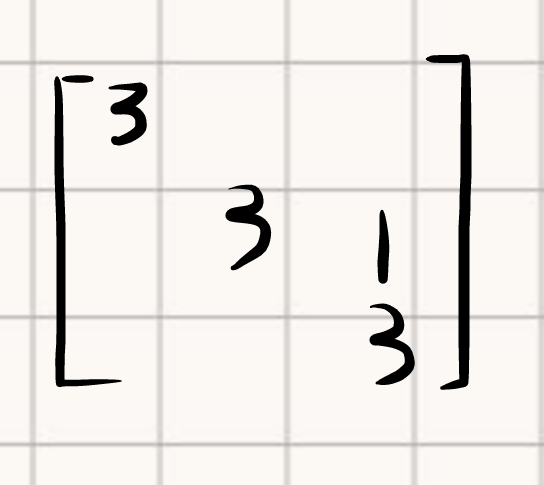 3
3 1
3